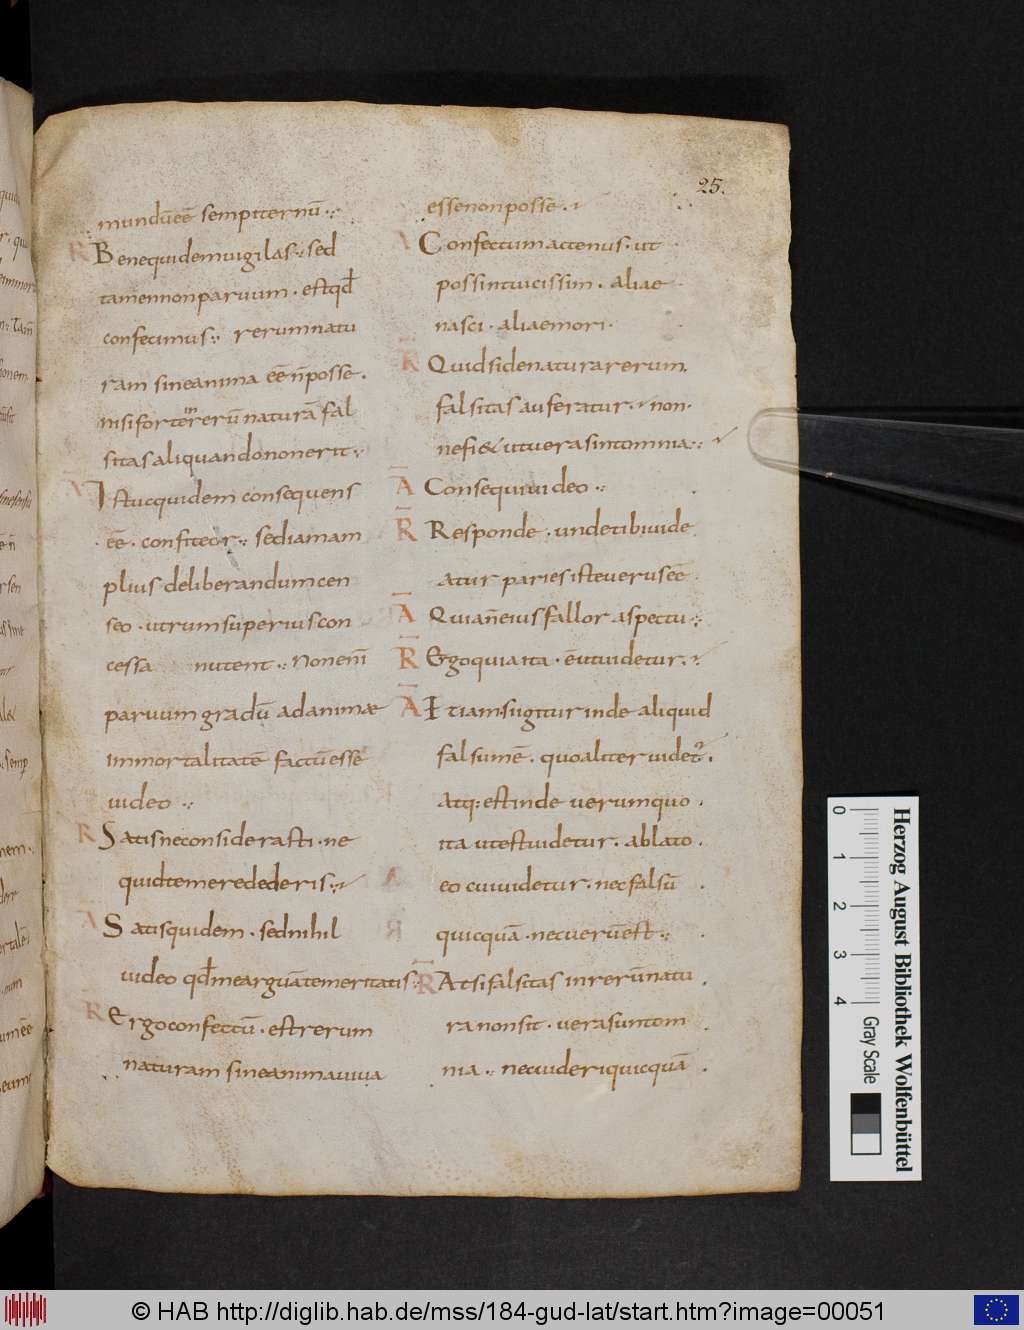 25.
mundūēē sempiternū.
R Benequidemuigilas. sed
tamennonparuum. estqd̄
confecimus. rerumnatu
ram sineanima ēē n̄posse.
nisiforterrerū naturā fal
sitasaliquandononerit.
A Istucquidem consequens
ēē. confiteor. sediamam
plius deliberandumcen
seo. utrumsuperiuscon
cessa nutent. Nonenī
paruumgradū adanimæ
immortalitatē factūesse
uideo.
R Satisneconsiderasti. ne
quidtemeredederis.
A Satisquidem. sednihil
uideo qd̄mearguātemeritatis.
R Ergoconfectū. estrerum
naturam sineanimauiua
essenonposse.
A Confectumactenus. ut
possintuicissim. aliae
nasci. aliaemori.
R Quidsidenaturarerum.
falsitasauferatur. non
nefi& utuerasintomnia.
A Consequiuideo.
R Responde. undetibiuide
atur pariesisteuerusēē
A Quian̄eiusfallor aspectu.
R Ergoquiaita. ēutuidetur.
A Itiamsiigiturinde aliquid
falsumē. quoaliteruidet.
atq: estinde uerumquo.
ita utestuidetur. ablato.
eo cuiuidetur. necfalsū.
quicquā. necuerūest.
R Atsifalsitas inrerūnatu.
ranonsit. uerasuntom
nia. necuideriquicquā.
Herzog August Bibliothek Wolfenbüttel
0 1 2 3 4 Gray Scale
© HAB http://diglib.hab.de/mss/184-gud-lat/start.htm?image=00051